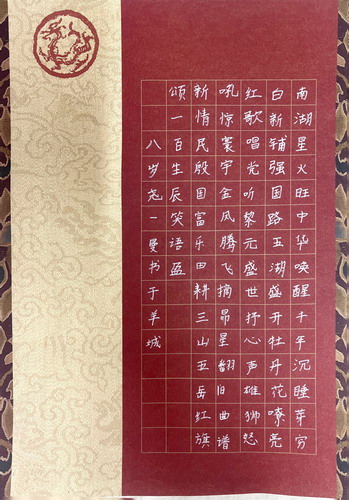 南湖星火旺中华唤醒千年沉睡芽穷
白新铺强国路五湖盛开牡丹花嘹亮
红歌唱党听黎元盛世抒心声雄狮怒
吼惊寰宇金凤腾飞摘昂星翻旧曲谱
新情民殷国富乐田耕三山五岳红旗
颂一百生辰笑语盈
八岁尧一曼书于羊城